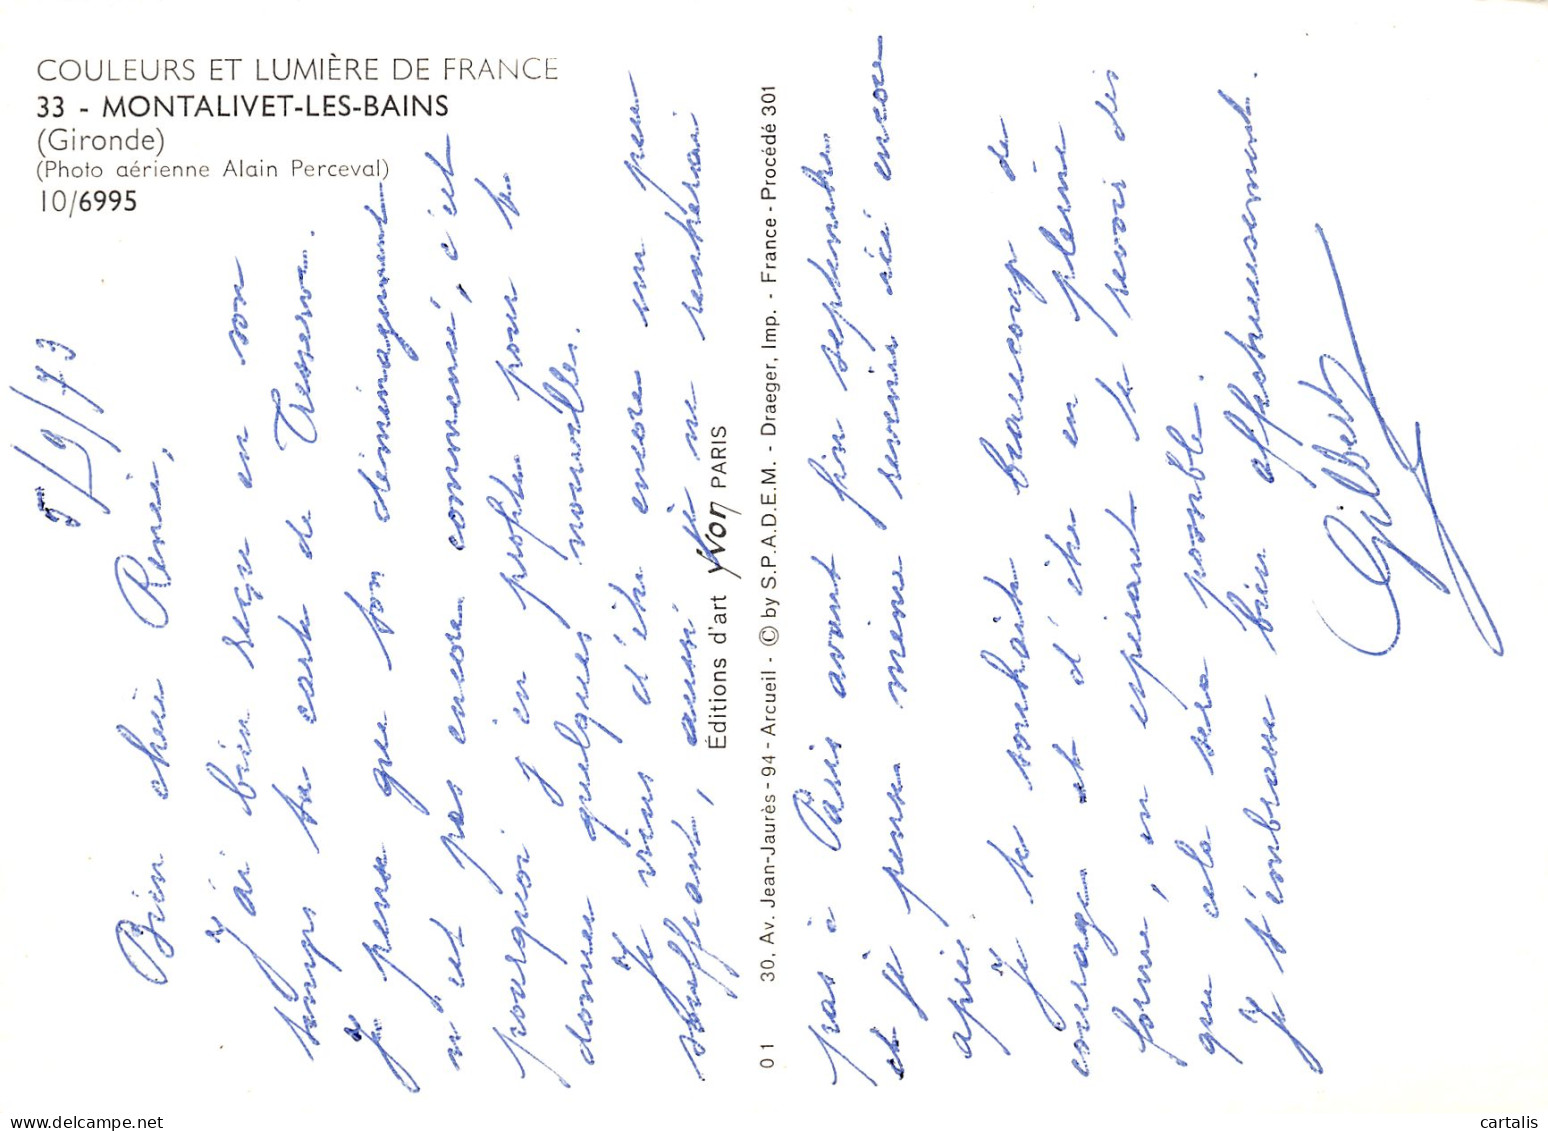 COULEURS ET LUMIÈRE DE FRANCE
33 - MONTALIVET-LES-BAINS
(Gironde)
(Photo aérienne Alain Perceval)
10/6995
5/9/73
Bien chère Renée,
J'ai bien reçu en son
temps ta carte de Tresserve.
Je pense que ton déménagement
n'est pas encore commencé, c'est
pourquoi j'en profite pour te
donner quelques nouvelles.
Je viens d'être encore un peu
souffrant, aussi je ne rentrerai
Éditions d'art Yvon PARIS
01 30, Av. Jean-Jaurès - 94 - Arcueil - © by S.P.A.D.E.M. - Draeger, Imp. - France - Procédé 301
pas à Paris avant fin septembre
et je pense même revenir ici encore
après.
Je te souhaite beaucoup de
courage et d'être en pleine
forme, en espérant te revoir dès
que cela sera possible.
Je t'embrasse bien affectueusement.
Gilbert
cartalis